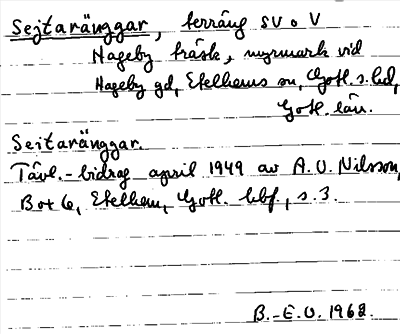 Sejtaränggar, terräng SV o V
Hageby träsk, myrmark vid
Hageby gd, Etelhems sn, Gotl. s. hd,
Gotl. län.
Seitaränggar.
Tävl.-bidrag april 1949 av A.V. Nilsson,
Box 6, Etelhem, Gotl. hbf., s. 3.
B.-E.O. 1968.